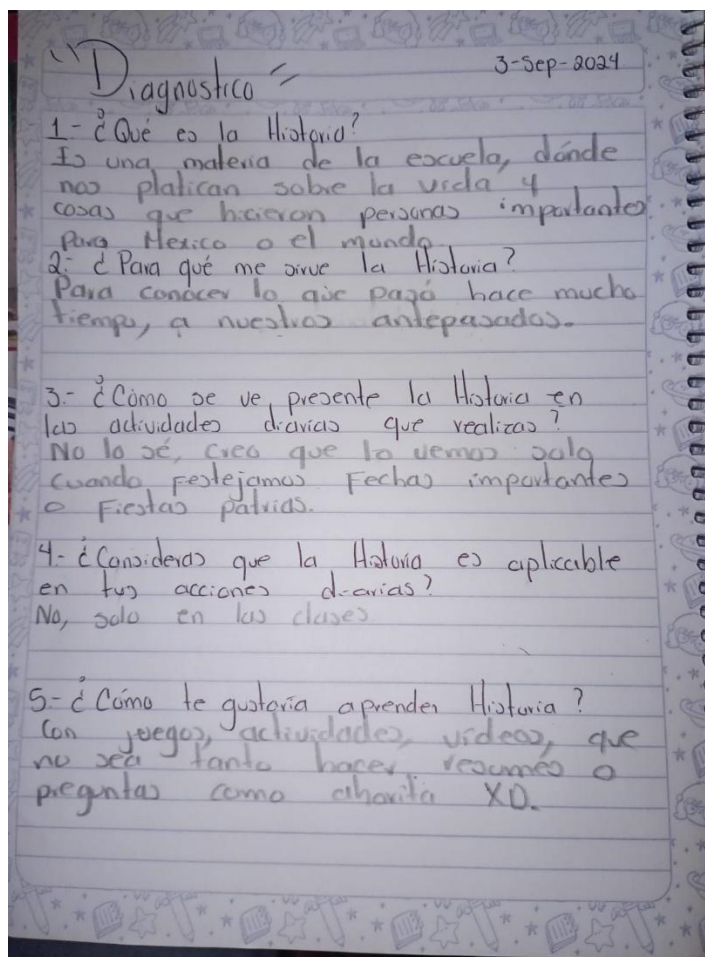 "Diagnostico"
3-Sep-2024
1- ¿Qué es la Historia?
Es una materia de la escuela, dónde
nos platican sobre la vida y
cosas que hicieron personas importantes
para Mexico o el mundo.
2- ¿Para qué me sirve la Historia?
Para conocer lo que pasó hace mucho
tiempo, a nuestros antepasados.
3.- ¿Cómo se ve presente la Historia en
las actividades diarias que realizas?
No lo sé, creo que lo vemos solo
cuando festejamos Fechas importantes
o Fiestas patrias.
4- ¿Consideras que la Historia es aplicable
en tus acciones diarias?
No, solo en las clases
5- ¿Cómo te gustaria aprender Historia?
Con juegos, actividades, videos, que
no sea tanto hacer resumés o
preguntas como ahorita XD.